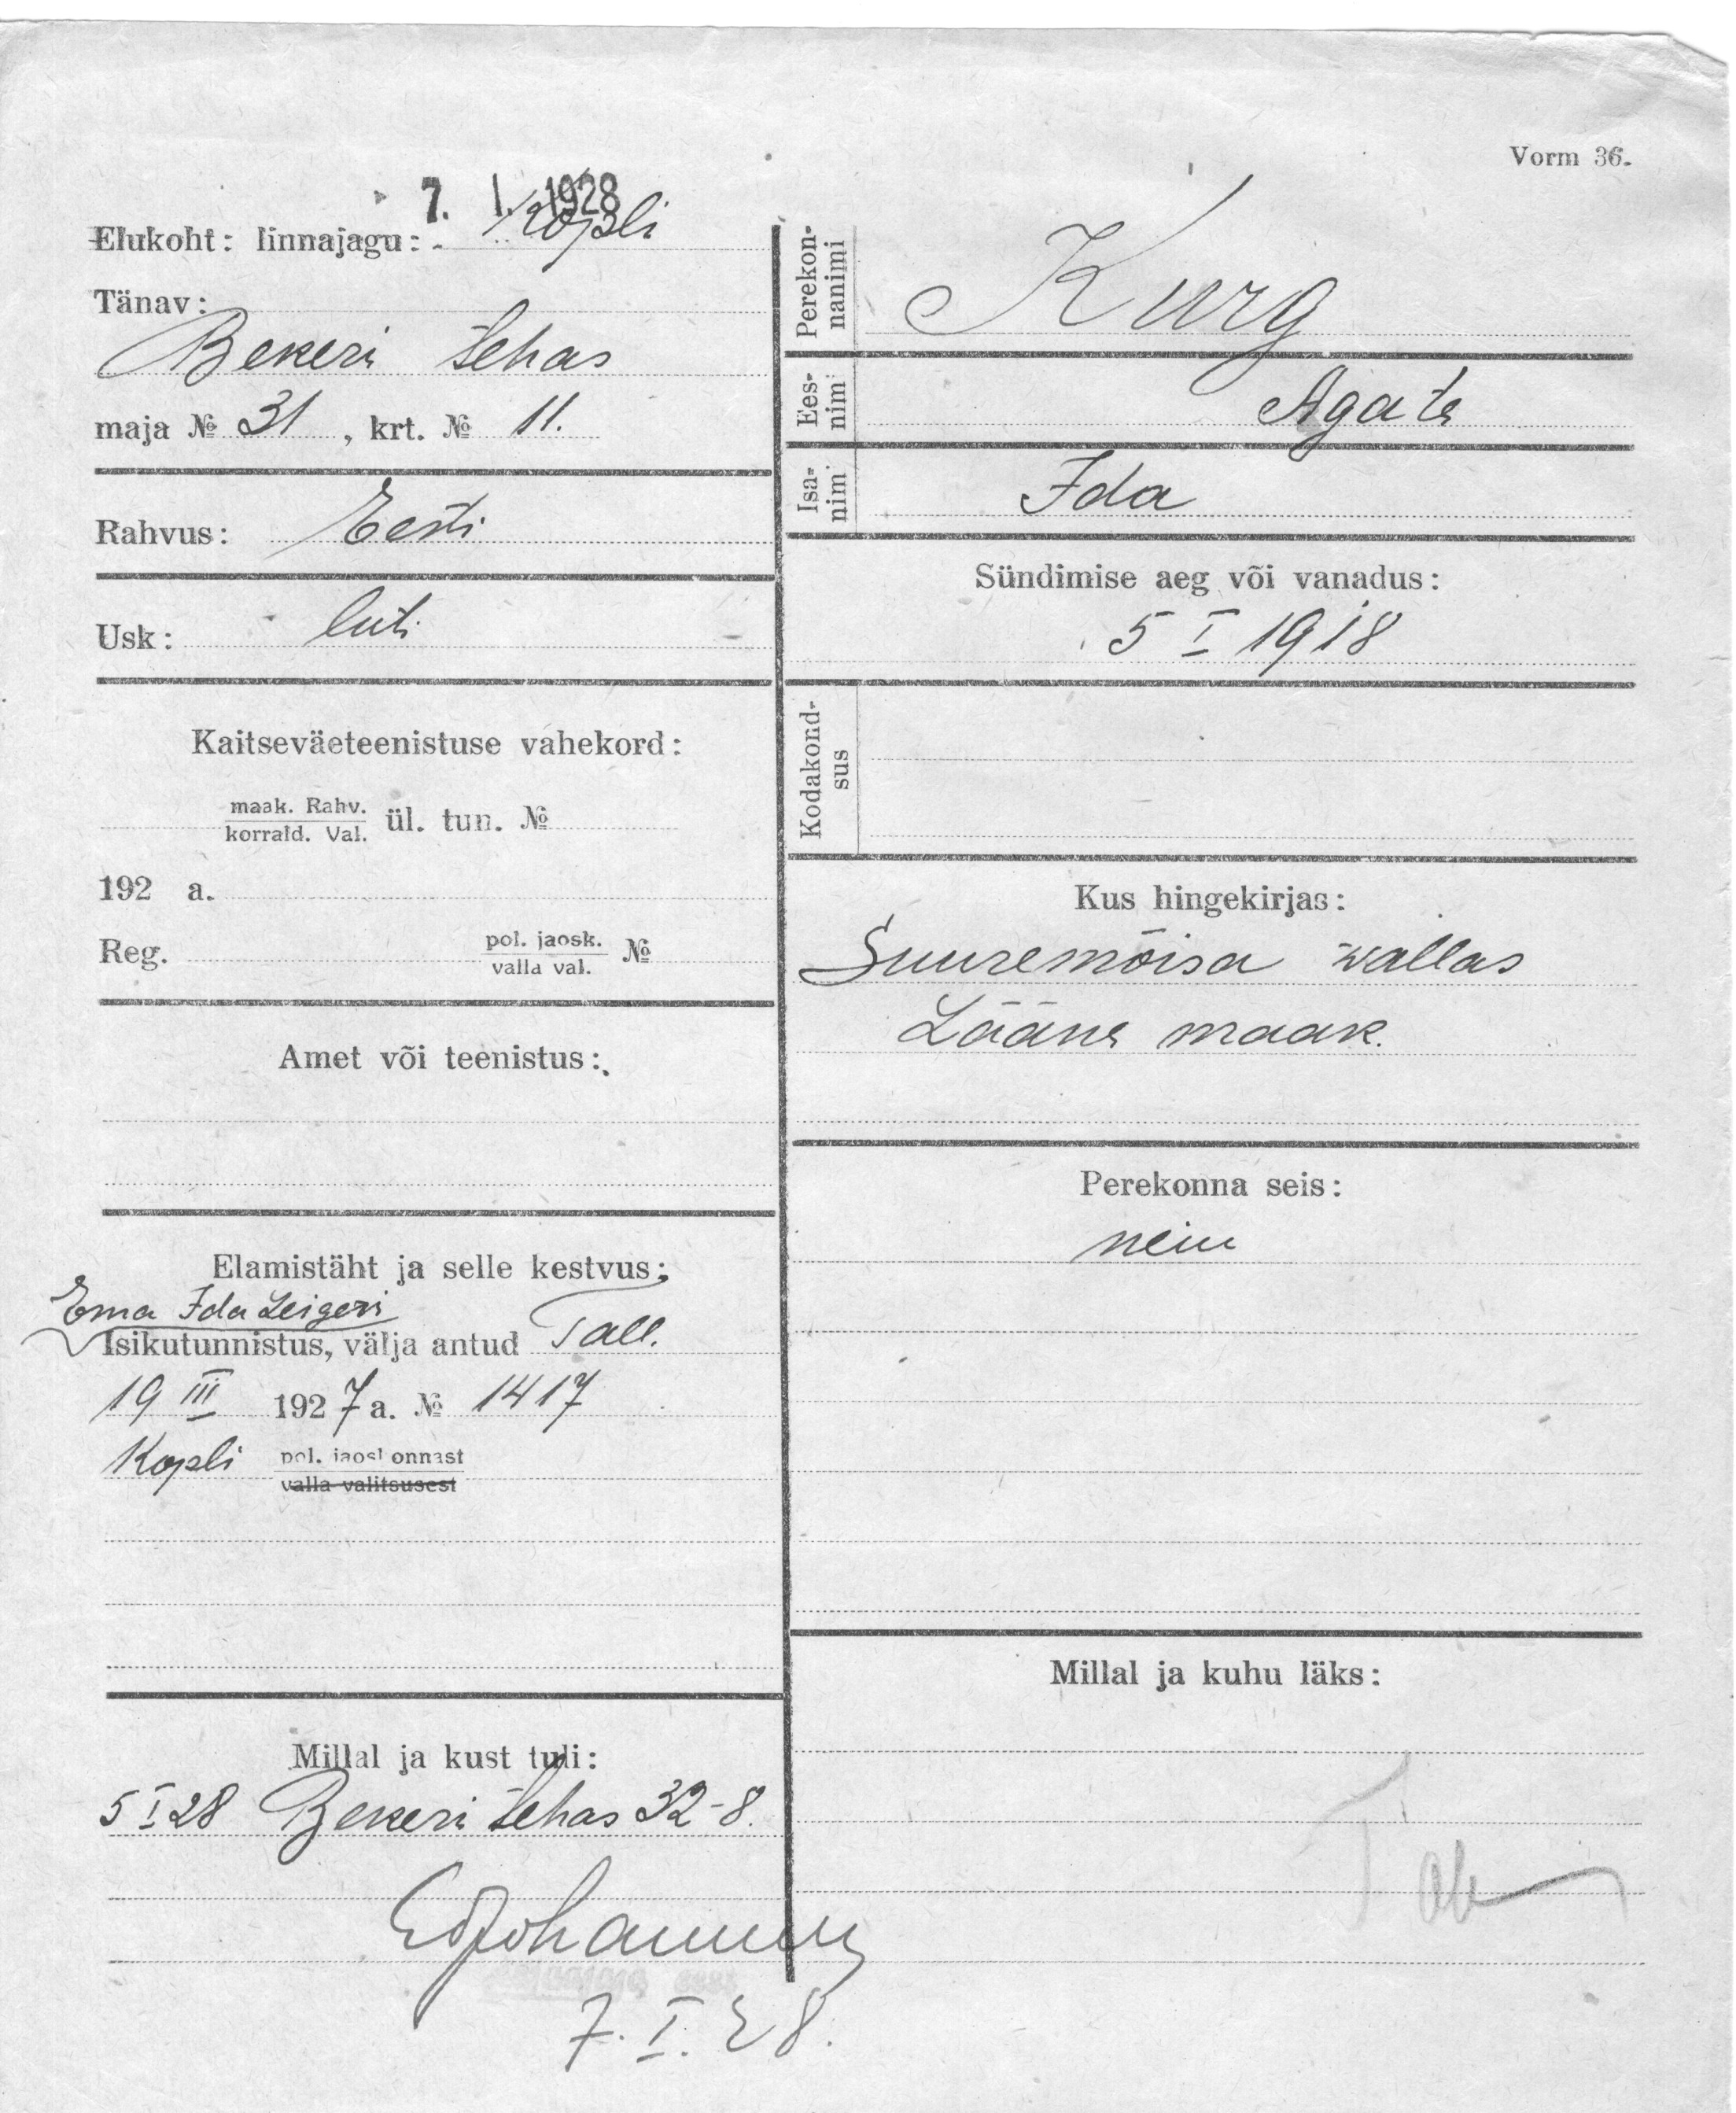 Vorm 36.
7. I. 1928
Elukoht: linnajagu: Kopli
Tänav:
Bekeri tehas
maja № 31, krt. № 11.
Rahvus: Eesti
Usk: luti
Kaitseväeteenistuse vahekord:
maak. Rahv.
korrald. Val. ül. tun. №
192 a.
Reg. pol. jaosk.
valla val. №
Amet või teenistus:
Elamistäht ja selle kestvus:
Ema Ida Leigeri
Isikutunnistus, välja antud Tall.
19 III 1927 a. № 1417
Kopli pol. jaoskonnast
valla valitsusest
Millal ja kust tuli:
5 I 28 Bekeri tehas 32-8.
7. I. 28.
Perekon-
nanimi Kurg
Ees-
nimi Agate
Isa-
nimi Ida
Sündimise aeg või vanadus:
5 I 1918
Kodakond-
sus
Kus hingekirjas:
Suuremõisa wallas
Lääne maak.
Perekonna seis:
neiu
Millal ja kuhu läks: